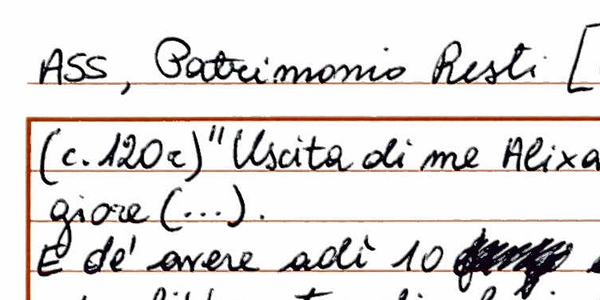 ASS, Patrimonio Resti [
(c. 120r) "Uscita di me Alixa
giore (...).
E de' avere adì 10